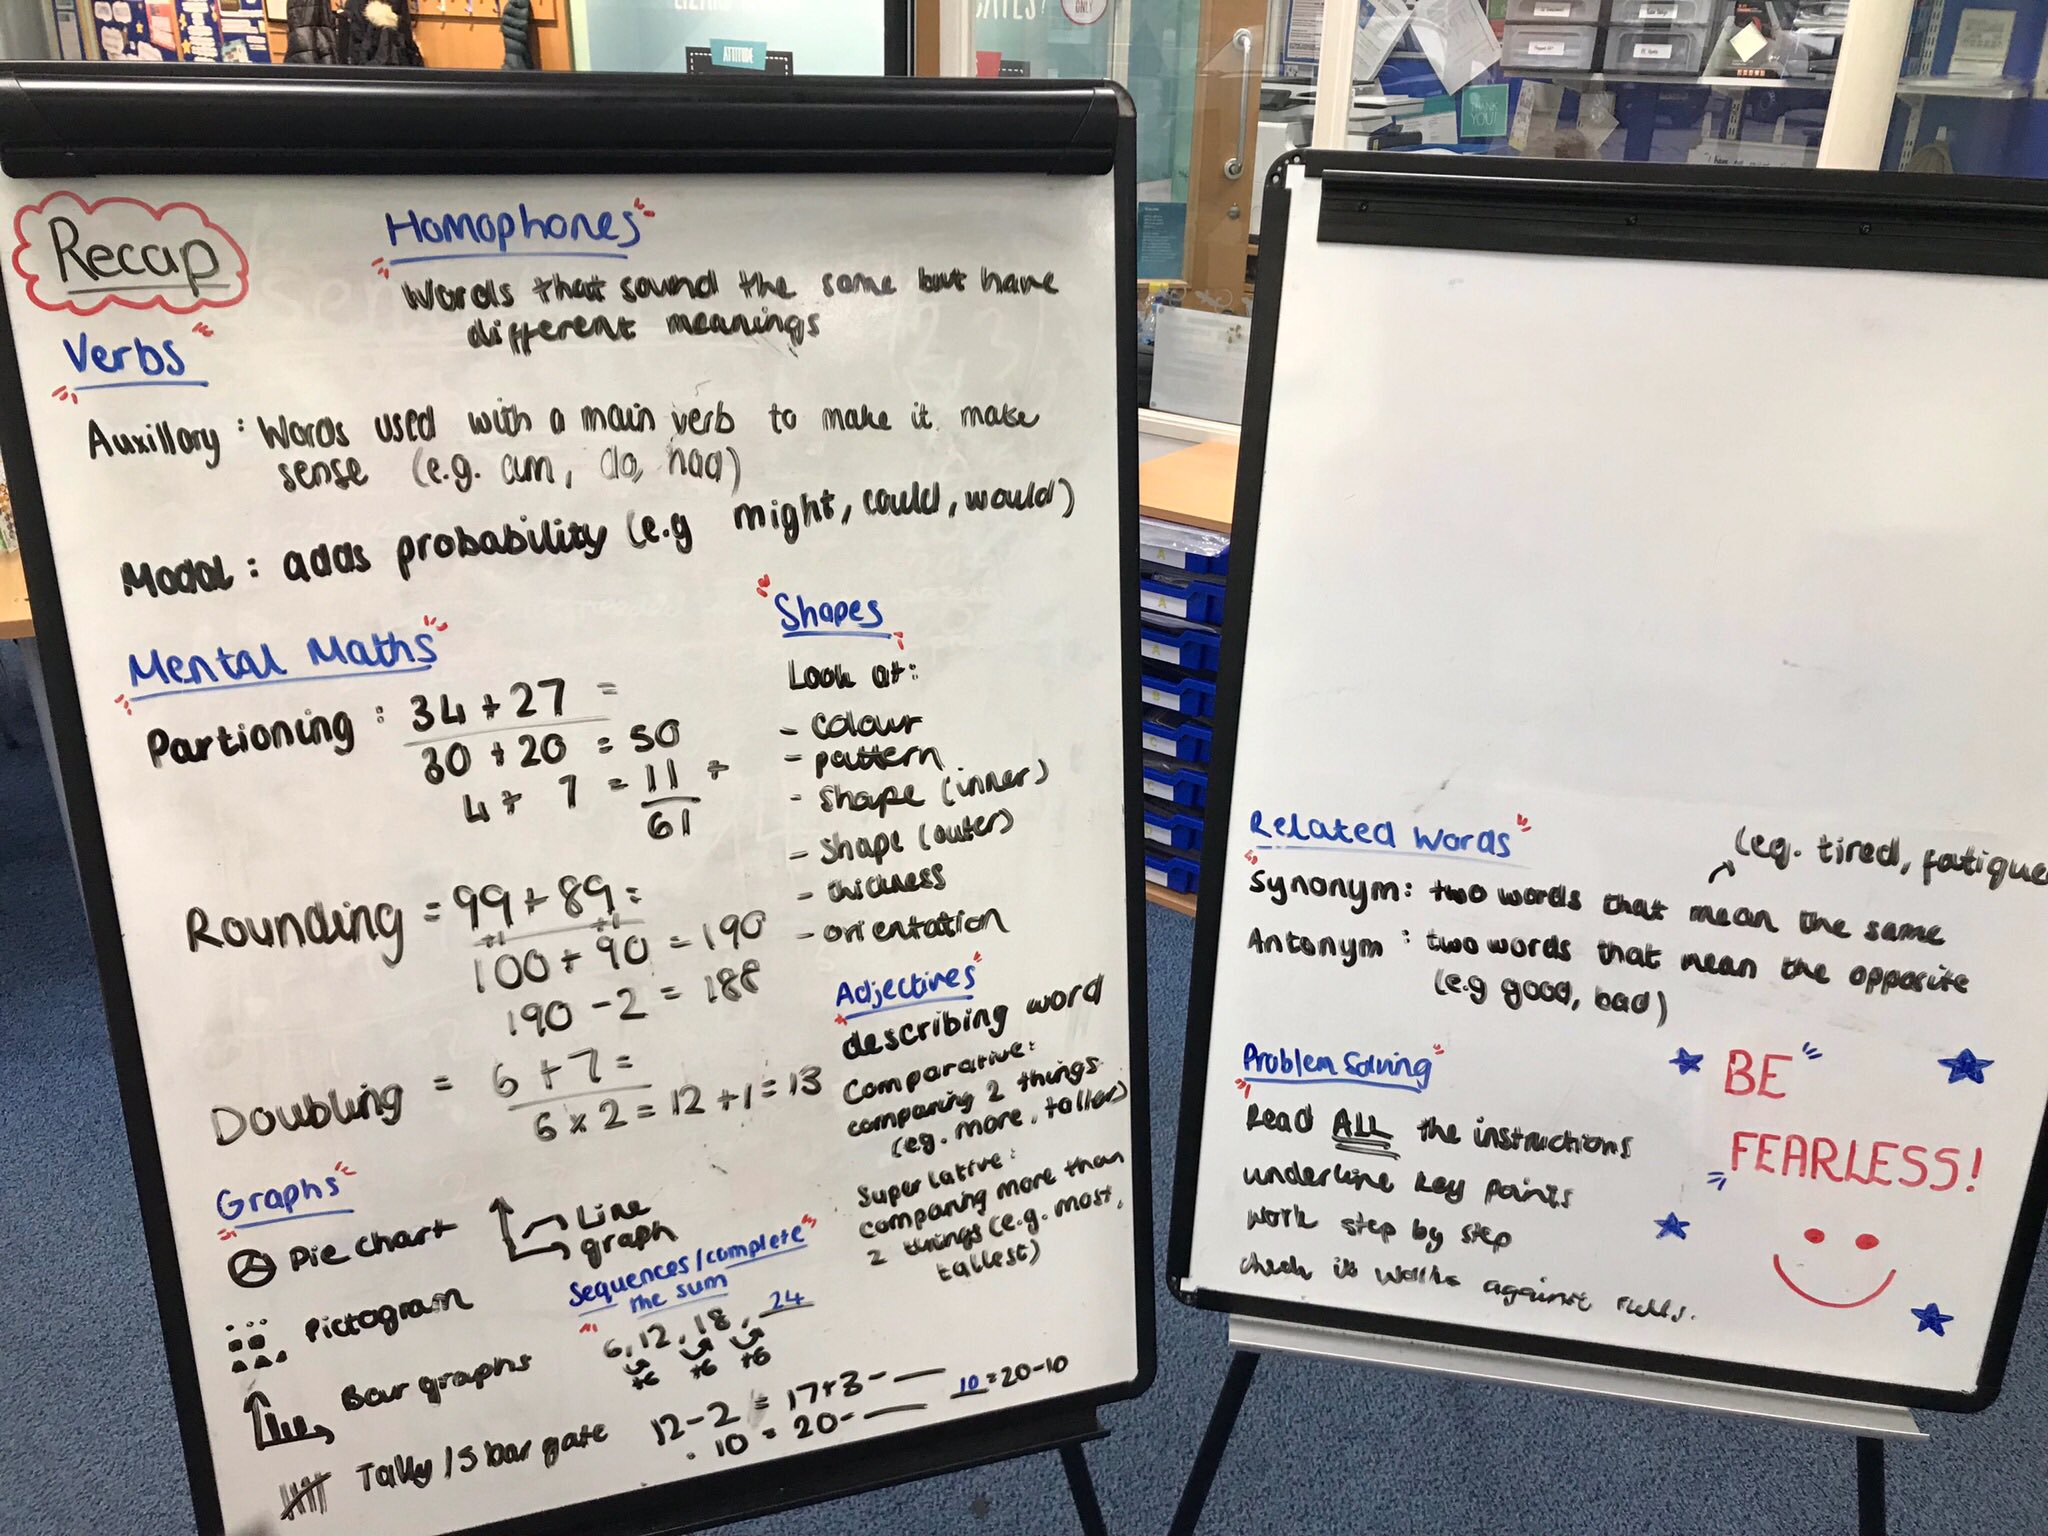 ATTITUDE
ONLY
THANK YOU!
Recap
Homophones
Words that sound the same but have
different meanings
Verbs
Auxillary : Words used with a main verb to make it make
sense (e.g. am, do, had)
Modal : adds probability (e.g might, could, would)
Mental Maths
Partioning : 34 + 27 =
30 + 20 = 50
4 + 7 = 11 +
61
Rounding = 99 + 89 =
+1 +1
100 + 90 = 190
190 - 2 = 188
Doubling = 6 + 7 =
6 x 2 = 12 + 1 = 13
Shapes
Look at:
- colour
- pattern
- shape (inner)
- shape (outer)
- thickness
- orientation
Adjectives
describing word
Comparative:
comparing 2 things
(e.g. more, taller)
Superlative:
comparing more than
2 things (e.g. most,
tallest)
Graphs
Pie chart
Line
graph
Pictogram
Bar graphs
Tally / 5 bar gate
Sequences/complete
the sum
6, 12, 18, 24
+6 +6 +6
12 - 2 = 17 + 3 - __
10 = 20 - __
10 = 20 - 10
Related Words
(eg. tired, fatigue
Synonym: two words that mean the same
Antonym : two words that mean the opposite
(e.g good, bad)
Problem Solving
Read ALL the instructions
underline key points
work step by step
check it works against rules.
BE
FEARLESS!